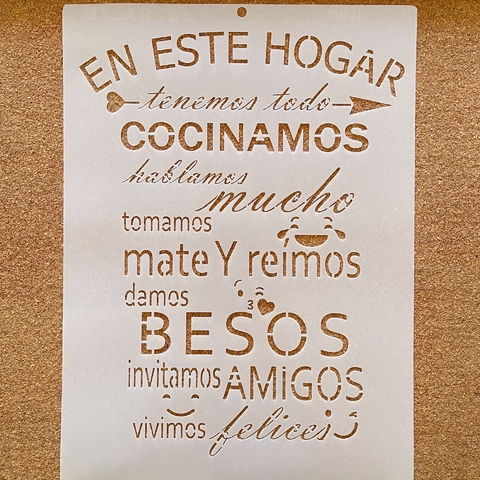 EN ESTE HOGAR
tenemos todo
COCINAMOS
hablamos
mucho
tomamos
mate Y reímos
damos
BESOS
invitamos AMiGOS
vivimos felices